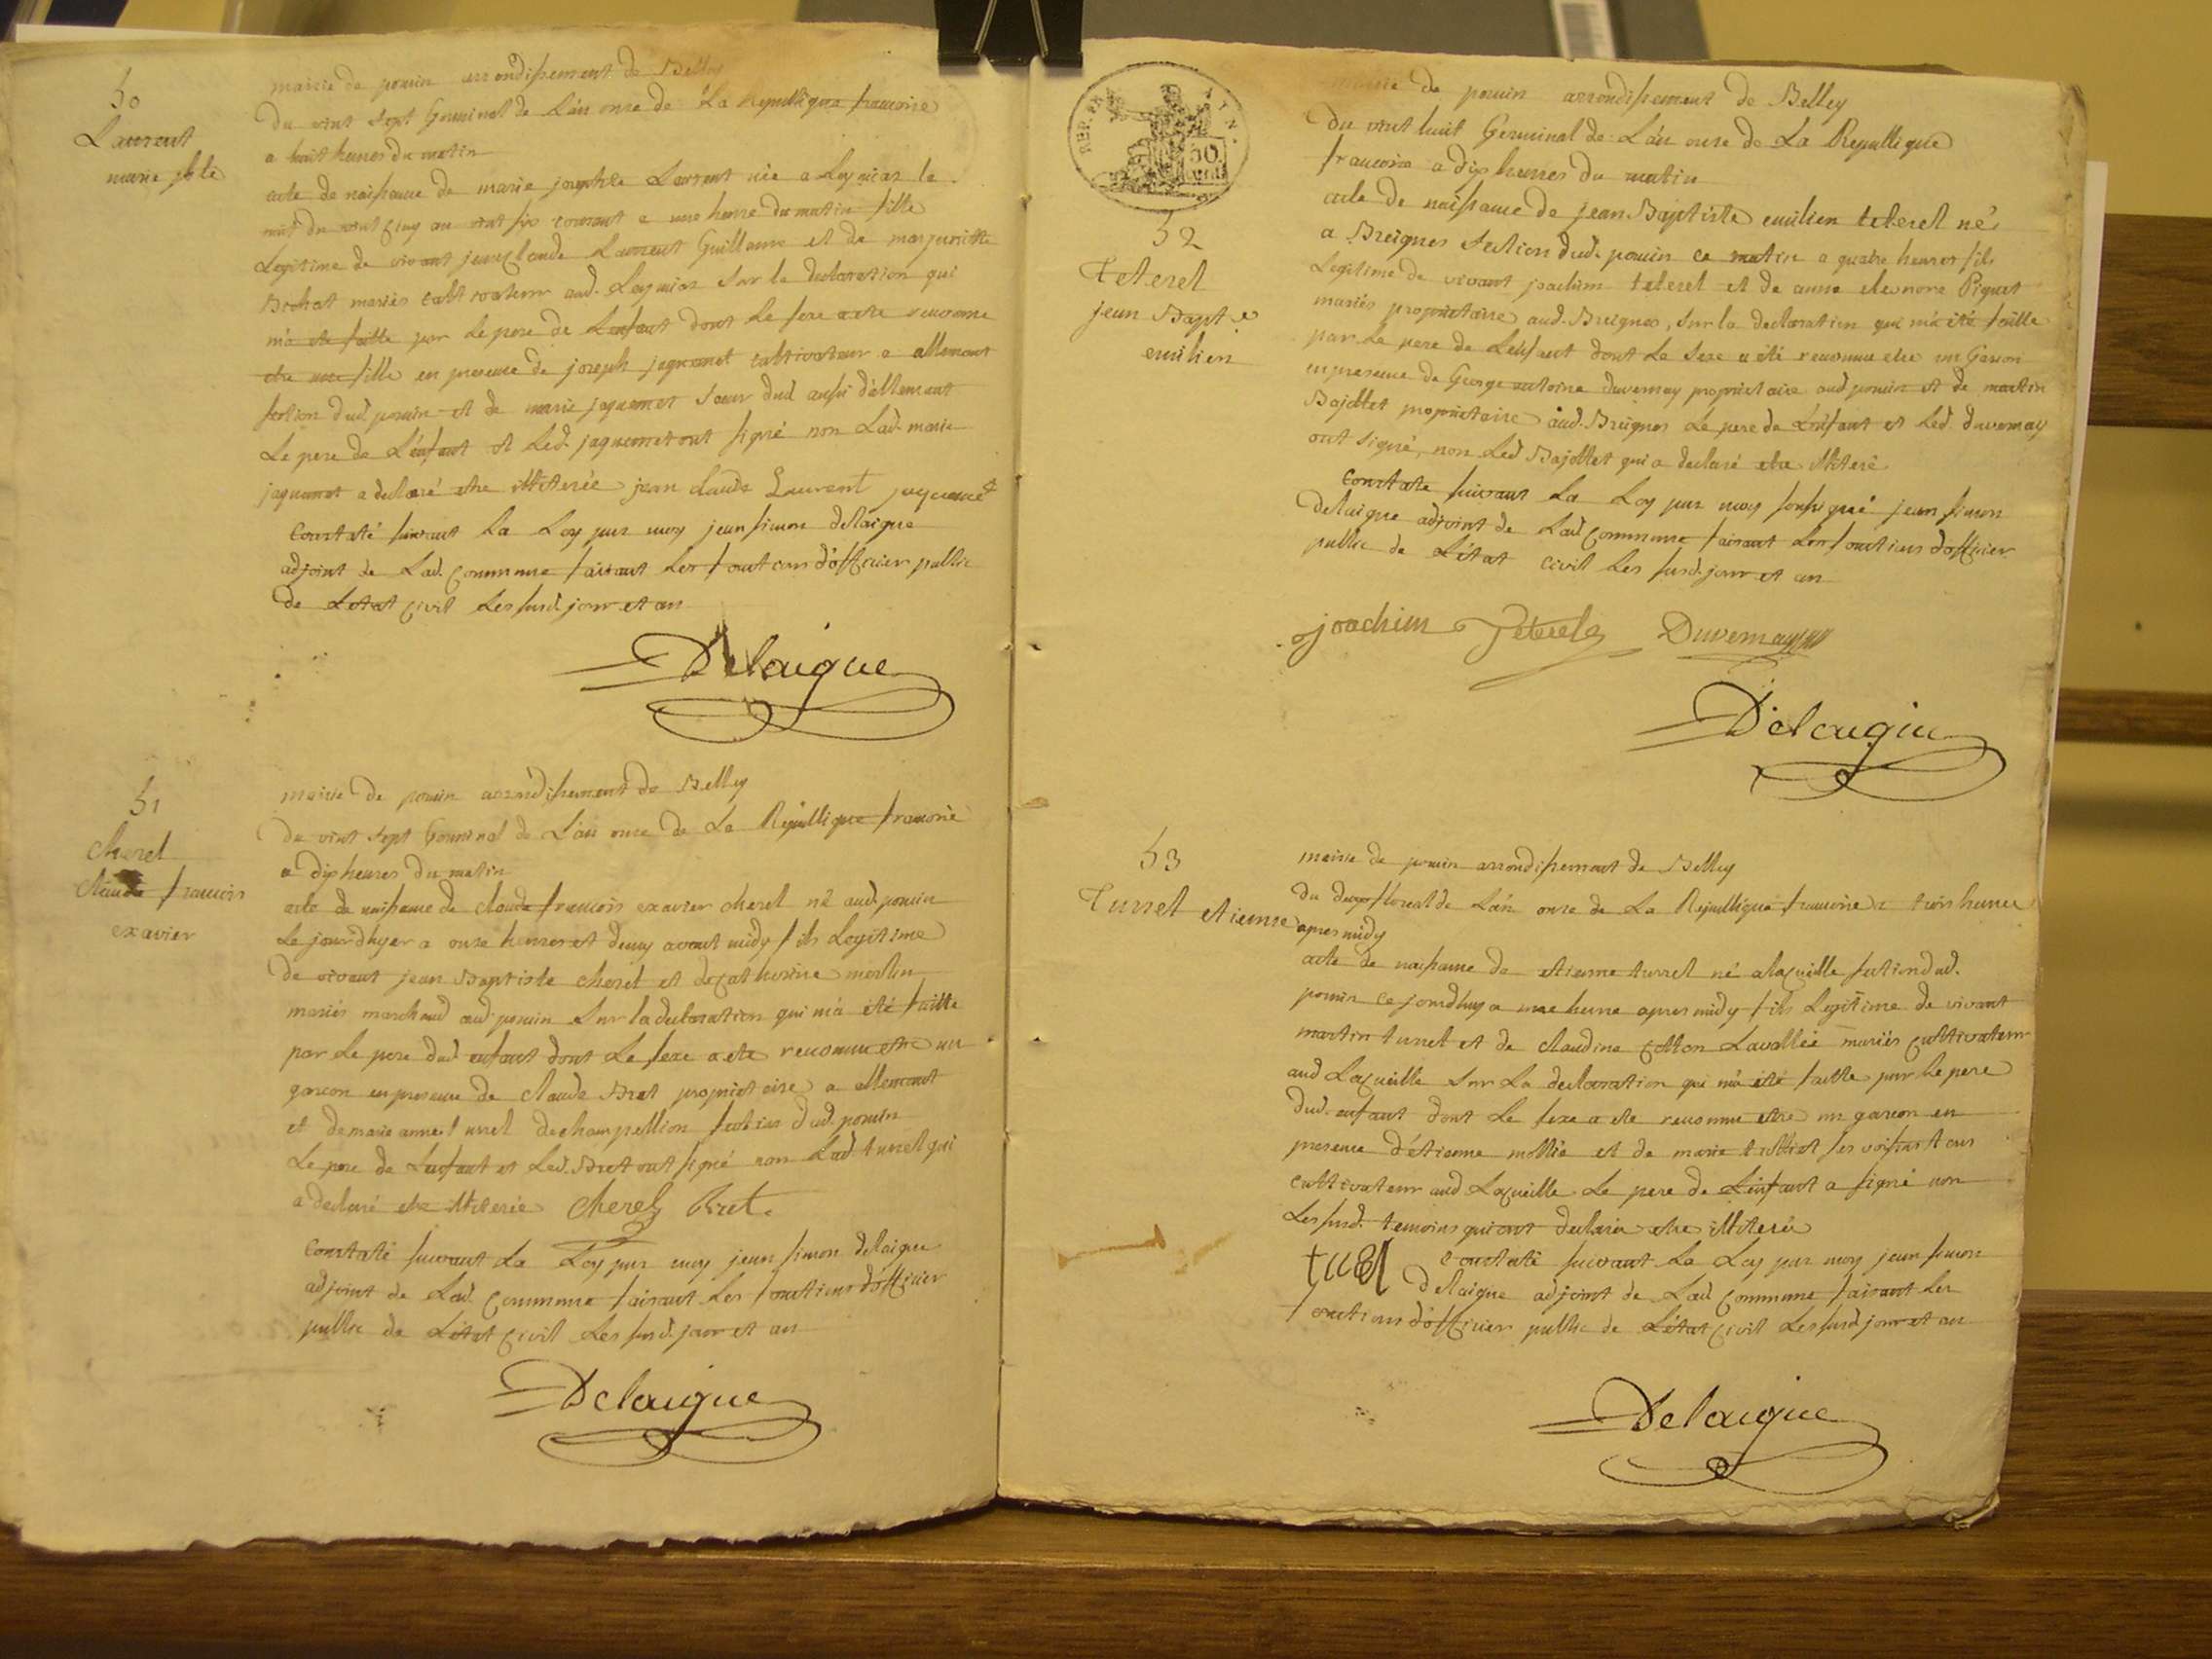 50
Laurent
marie jphte
mairie de pouin arrondissement de Belley
Du vint sept Germinal de L'an onze de La Republique francoise
a huit heures du matin
acte de naissance de marie josephte Laurent née a Leymias le
nuit du vint cinq au vint six courant a une heure du matin fille
Legitime de vivant jean Claude Laurent Guillaume et de margueritte
Bochat mariés cultivateur aud. Leymias Sur la declaration qui
m'a ete faitte par Le pere de Lenfant dont Le sexe a ete reconnu
etre une fille en presence de joseph jaquemet cultivateur a allemant
section dud pouin et de marie jaquemet soeur dud aussi d'allemant
Le pere de L'enfant et Led. jaquemet ont signé non Lad. marie
jaquemet a declaré etre illiterée jean claude Laurent jaquemet
Constaté suivant La Loy par moy jean simon delaigue
adjoint de Lad. Commune faisant Les fonctions d'officier public
de Letat Civil Les susd. jour et an
Delaigue
51
Cherel
claude francois
exavier
mairie de pouin arrondissement de Belley
du vint sept Germinal de L'an onze de La Republique francoise
a dix heures du matin
acte de naissance de claude francois exavier cherel né aud. pouin
Le jourdhyer a onze heures et demy avant midy fils Legitime
de vivant jean Baptiste cherel et de Catherine merlin
mariés marchand aud. pouin Sur la declaration qui m'a été faitte
par Le pere dud enfant dont Le sexe a ete reconnu etre un
garcon en presence de claude Bret proprietaire a allemant
et de marie anne turrel de champellion section dud. pouin
Le pere de Lenfant et Led. Bret ont signé non Lad. turrel qui
a declaré etre illiterée Cherel Bret.
Constaté suivant La Loy par moy jean simon delaigue
adjoint de Lad. Commune faisant Les fonctions d'officier
public de L'etat Civil Les susd. jour et an
Delaigue
REP. FRA
50
52
Teterel
jean Bapt.e
emilien
mairie de pouin arrondissement de Belley
Du vint huit Germinal de L'an onze de La Republique
francoise a dix heures du matin
acte de naissance de jean Baptiste emilien teterel né
a Breignes section dud. pouin ce matin a quatre heures fils
Legitime de vivant joachim teterel et de anne eleonore Piquet
mariés proprietaire aud. Breignes, sur la declaration qui m'a été faitte
par Le pere de L'enfant dont Le sexe a été reconnu etre un Garcon
en presence de George antoine duvernay proprietaire aud pouin et de martin
Bajollet proprietaire aud. Breignes Le pere de L'enfant et Led. duvernay
ont signé, non Led Bajollet qui a declaré etre illiteré
Constaté suivant La Loy par moy soussigné jean simon
delaigue adjoint de Lad Commune faisant Les fonctions d'officier
public de L'état Civil Les susd. jour et an
joachim Teterel Duvernay
Delaigue
53
Turrel etienne
mairie de pouin arrondissement de Belley
du deux floreal de L'an onze de La Republique francoise a trois heures
apres midy
acte de naissance de etienne turrel né a la Cueille section dud.
pouin ce jourdhuy a une heure apres midy fils Legitime de vivant
martin turrel et de claudine Cotton Lavallée mariés cultivateur
aud La Cueille sur La declaration qui m'a été faitte par Le pere
dud. enfant dont Le sexe a ete reconnu etre un garcon en
presence d'étienne mollie et de marie trolliet ses voisins tous
cultivateur aud La Cueille Le pere de L'enfant a signé non
Les susd. temoins qui ont declaré etre illiterés
turel Constaté suivant La Loy par moy jean simon
delaigue adjoint de Lad Commune faisant Les
fonctions d'officier public de L'état Civil Les susd jour et an
Delaigue